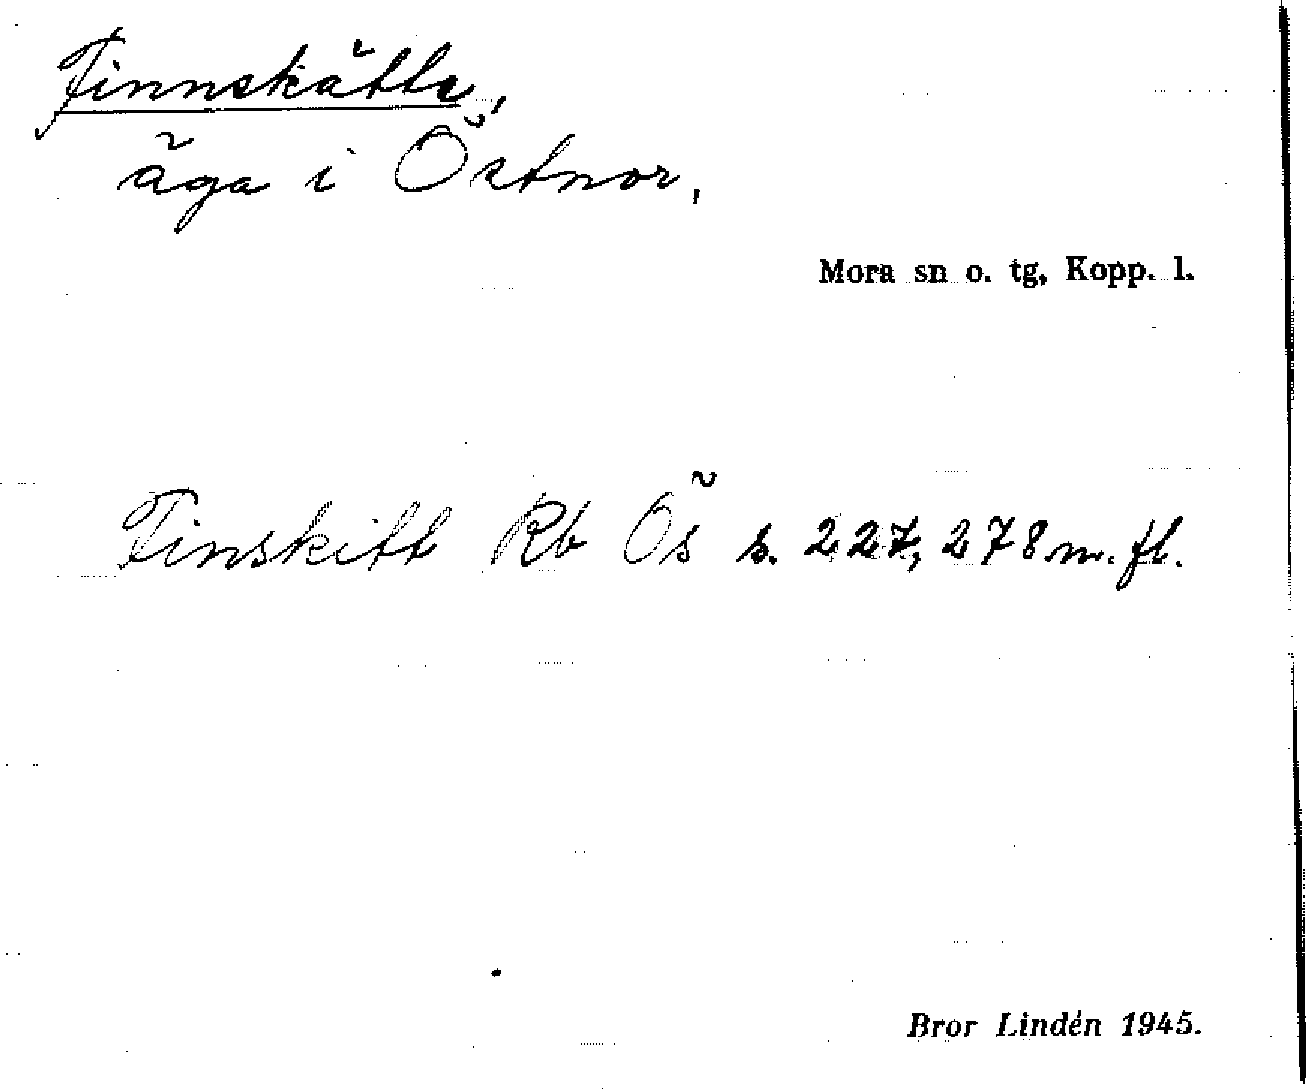 Finnskätte,
äga i Östnor,
Mora sn o. tg, Kopp. l.
Finskitt Rb Ös s. 227, 278 m. fl.
Bror Lindén 1945.